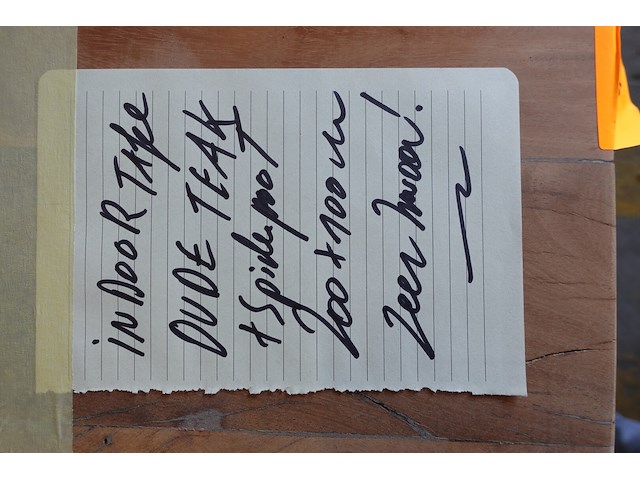 iNDOOR TAfel
OUDE TEAK
+ Spiderpoot
200 x 100 cm
Zeer mooi!